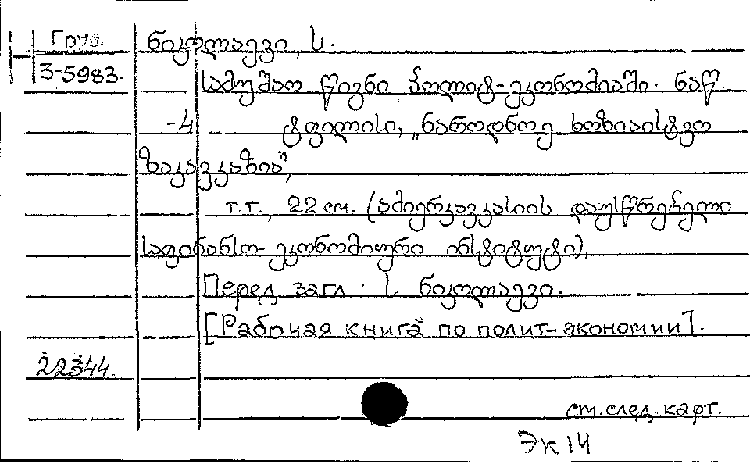 Груз. ნიკოლაევი, ს.
3-5983. სამუშაო წიგნი პოლიტ-ეკონომიაში. ნაწ.
-4 ტფილისი, „ნაროდნოე ხოზიაისტვო
ზაკავკაზია",
т.т., 22 см. (ამიერკავკასიის დაუსწრებელი
საფინანსო-ეკონომიური ინსტიტუტი).
Перед загл. ს. ნიკოლაევი.
[Рабочая книга по полит-экономии].
22344.
см. след. карт.
Эк 14